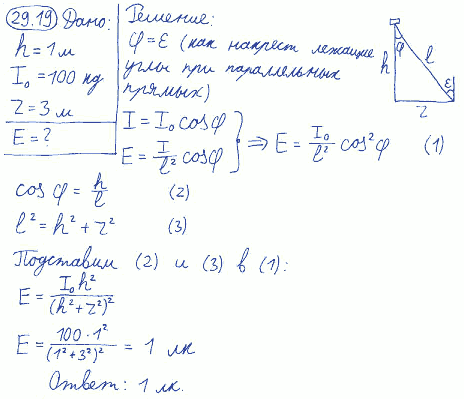 29.19 Дано:
h = 1 м
I₀ = 100 кд
z = 3 м
E = ?
Решение:
φ = ε (как накрест лежащие
углы при параллельных
прямых)
I = I₀ cos φ
E = I/l² cos φ
} ⇒ E = I₀/l² cos² φ (1)
h φ l ε z
cos φ = h/l (2)
l² = h² + z² (3)
Подставим (2) и (3) в (1):
E = I₀h²/(h² + z²)²
E = 100 · 1²/(1² + 3²)² = 1 лк
Ответ: 1 лк.